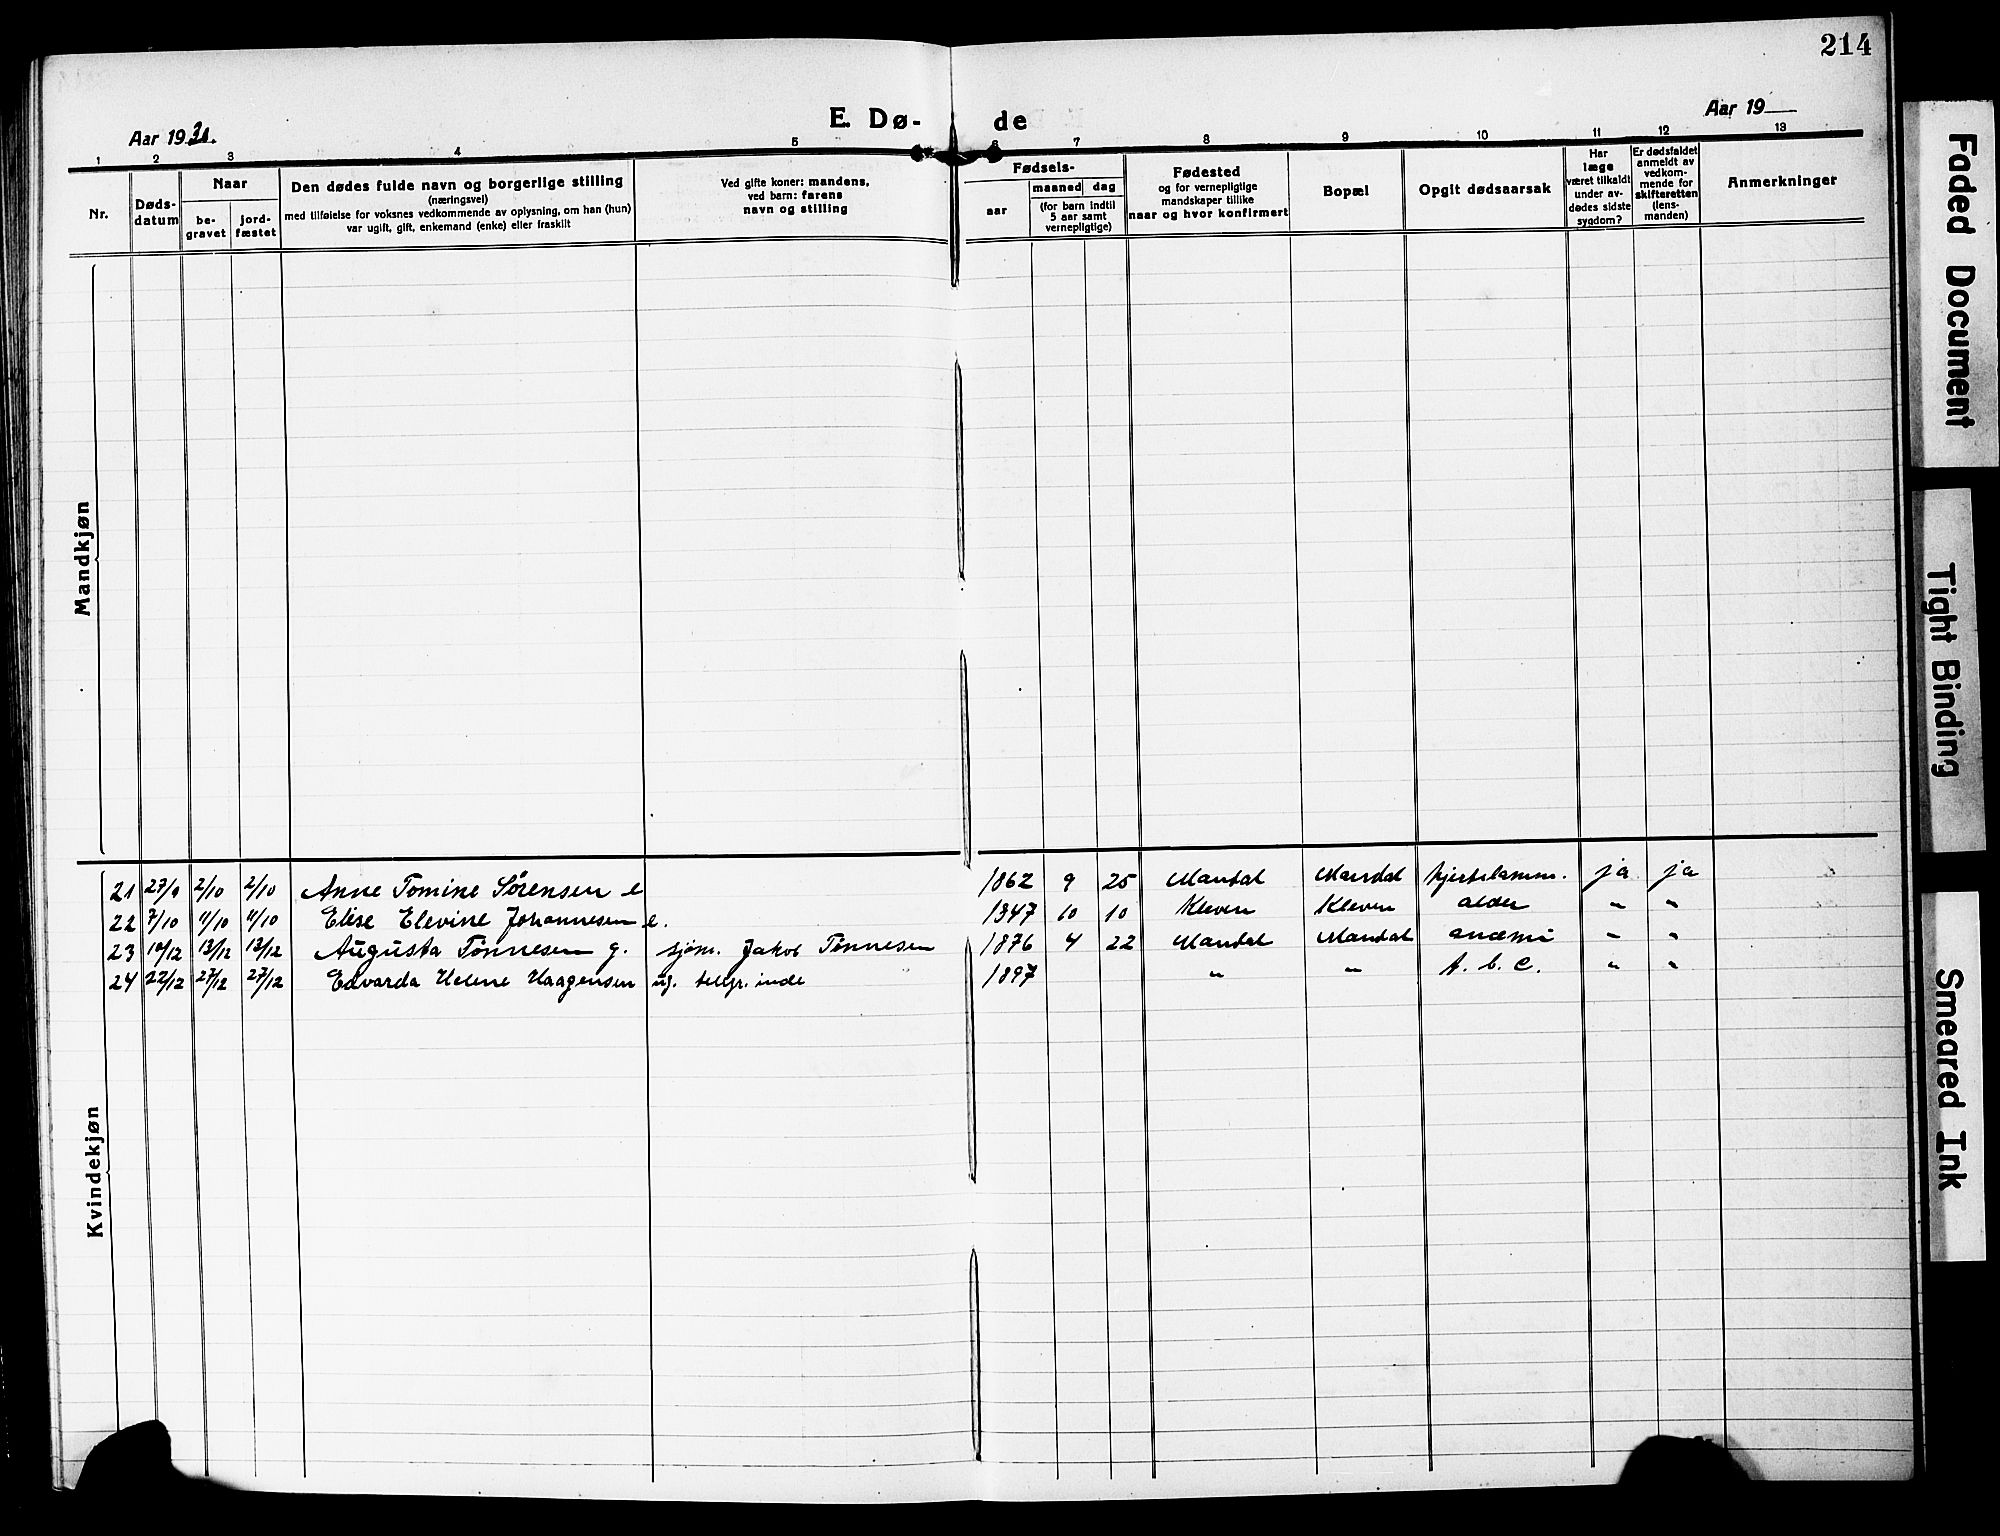 214
E. Dø- de
Aar 1930.
Aar 19
1 2 3 4 5 6 7 8 9 10 11 12 13
Nr.
Døds-
datum
Naar
be-
gravet
jord-
fæstet
Den dødes fulde navn og borgerlige stilling
(næringsvei)
med tilføielse for voksnes vedkommende av oplysning, om han (hun)
var ugift, gift, enkemand (enke) eller fraskilt
Ved gifte koner: mandens,
ved barn: farens
navn og stilling
Fødsels-
aar
maaned dag
(for barn indtil
5 aar samt
vernepligtige)
Fødested
og for vernepligtige
mandskaper tillike
naar og hvor konfirmert
Bopæl
Opgit dødsaarsak
Har
læge
været tilkaldt
under av-
dødes sidste
sygdom?
Er dødsfaldet
anmeldt av
vedkom-
mende for
skifteretten
(lens-
manden)
Anmerkninger
Mandkjøn
Kvindekjøn
21 27/9 2/10 2/10 Anne Tomine Sørensen e 1862 9 25 Mandal Mandal hjertelamm. ja ja
22 7/10 11/10 11/10 Elise Elevine Johannesen e. 1847 10 10 Kleven Kleven alder " "
23 10/12 13/12 13/12 Augusta Tønnesen g. sjøm. Jakob Tønnesen 1876 4 22 Mandal Mandal anæmi " "
24 22/12 27/12 27/12 Edvarda Helene Haagensen ug. telgr. inde 1897 " " t. b. c. " "
Faded Document
Tight Binding
Smeared Ink